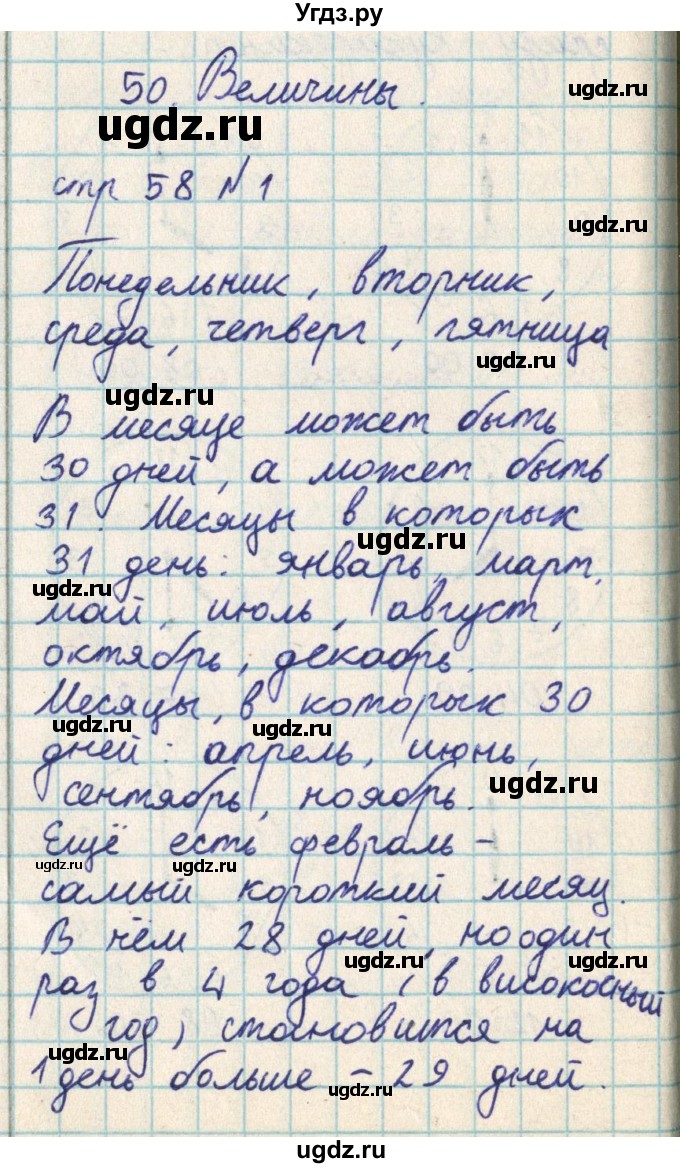 Угдз.ру
50. Величины.
ugdz.ru
ugdz.ru
стр 58 №1
ugdz.ru
Понедельник, вторник,
среда, четверг, пятница
ugdz.ru
ugdz.ru
В месяце может быть
30 дней, а может быть
31. Месяцы в которых
ugdz.ru
31 день: январь, март,
ugdz.ru
май, июль, август,
октябрь, декабрь.
Месяцы, в которых 30
ugdz.ru
ugdz.ru
дней: апрель, июнь,
ugdz.ru
сентябрь, ноябрь.
Ещё есть февраль –
ugdz.ru
ugdz.ru
самый короткий месяц.
В нём 28 дней, но один
ugdz.ru
ugdz.ru
раз в 4 года (в високосный
год) становится на
ugdz.ru
1 день больше – 29 дней.
ugdz.ru
ugdz.ru